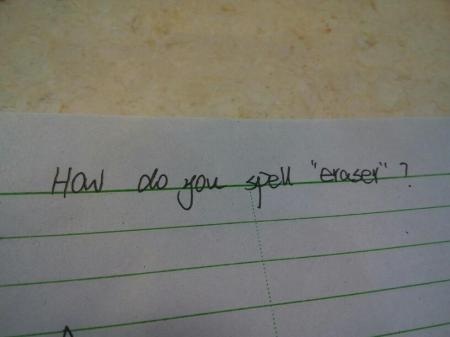 How do you spell "eraser"?